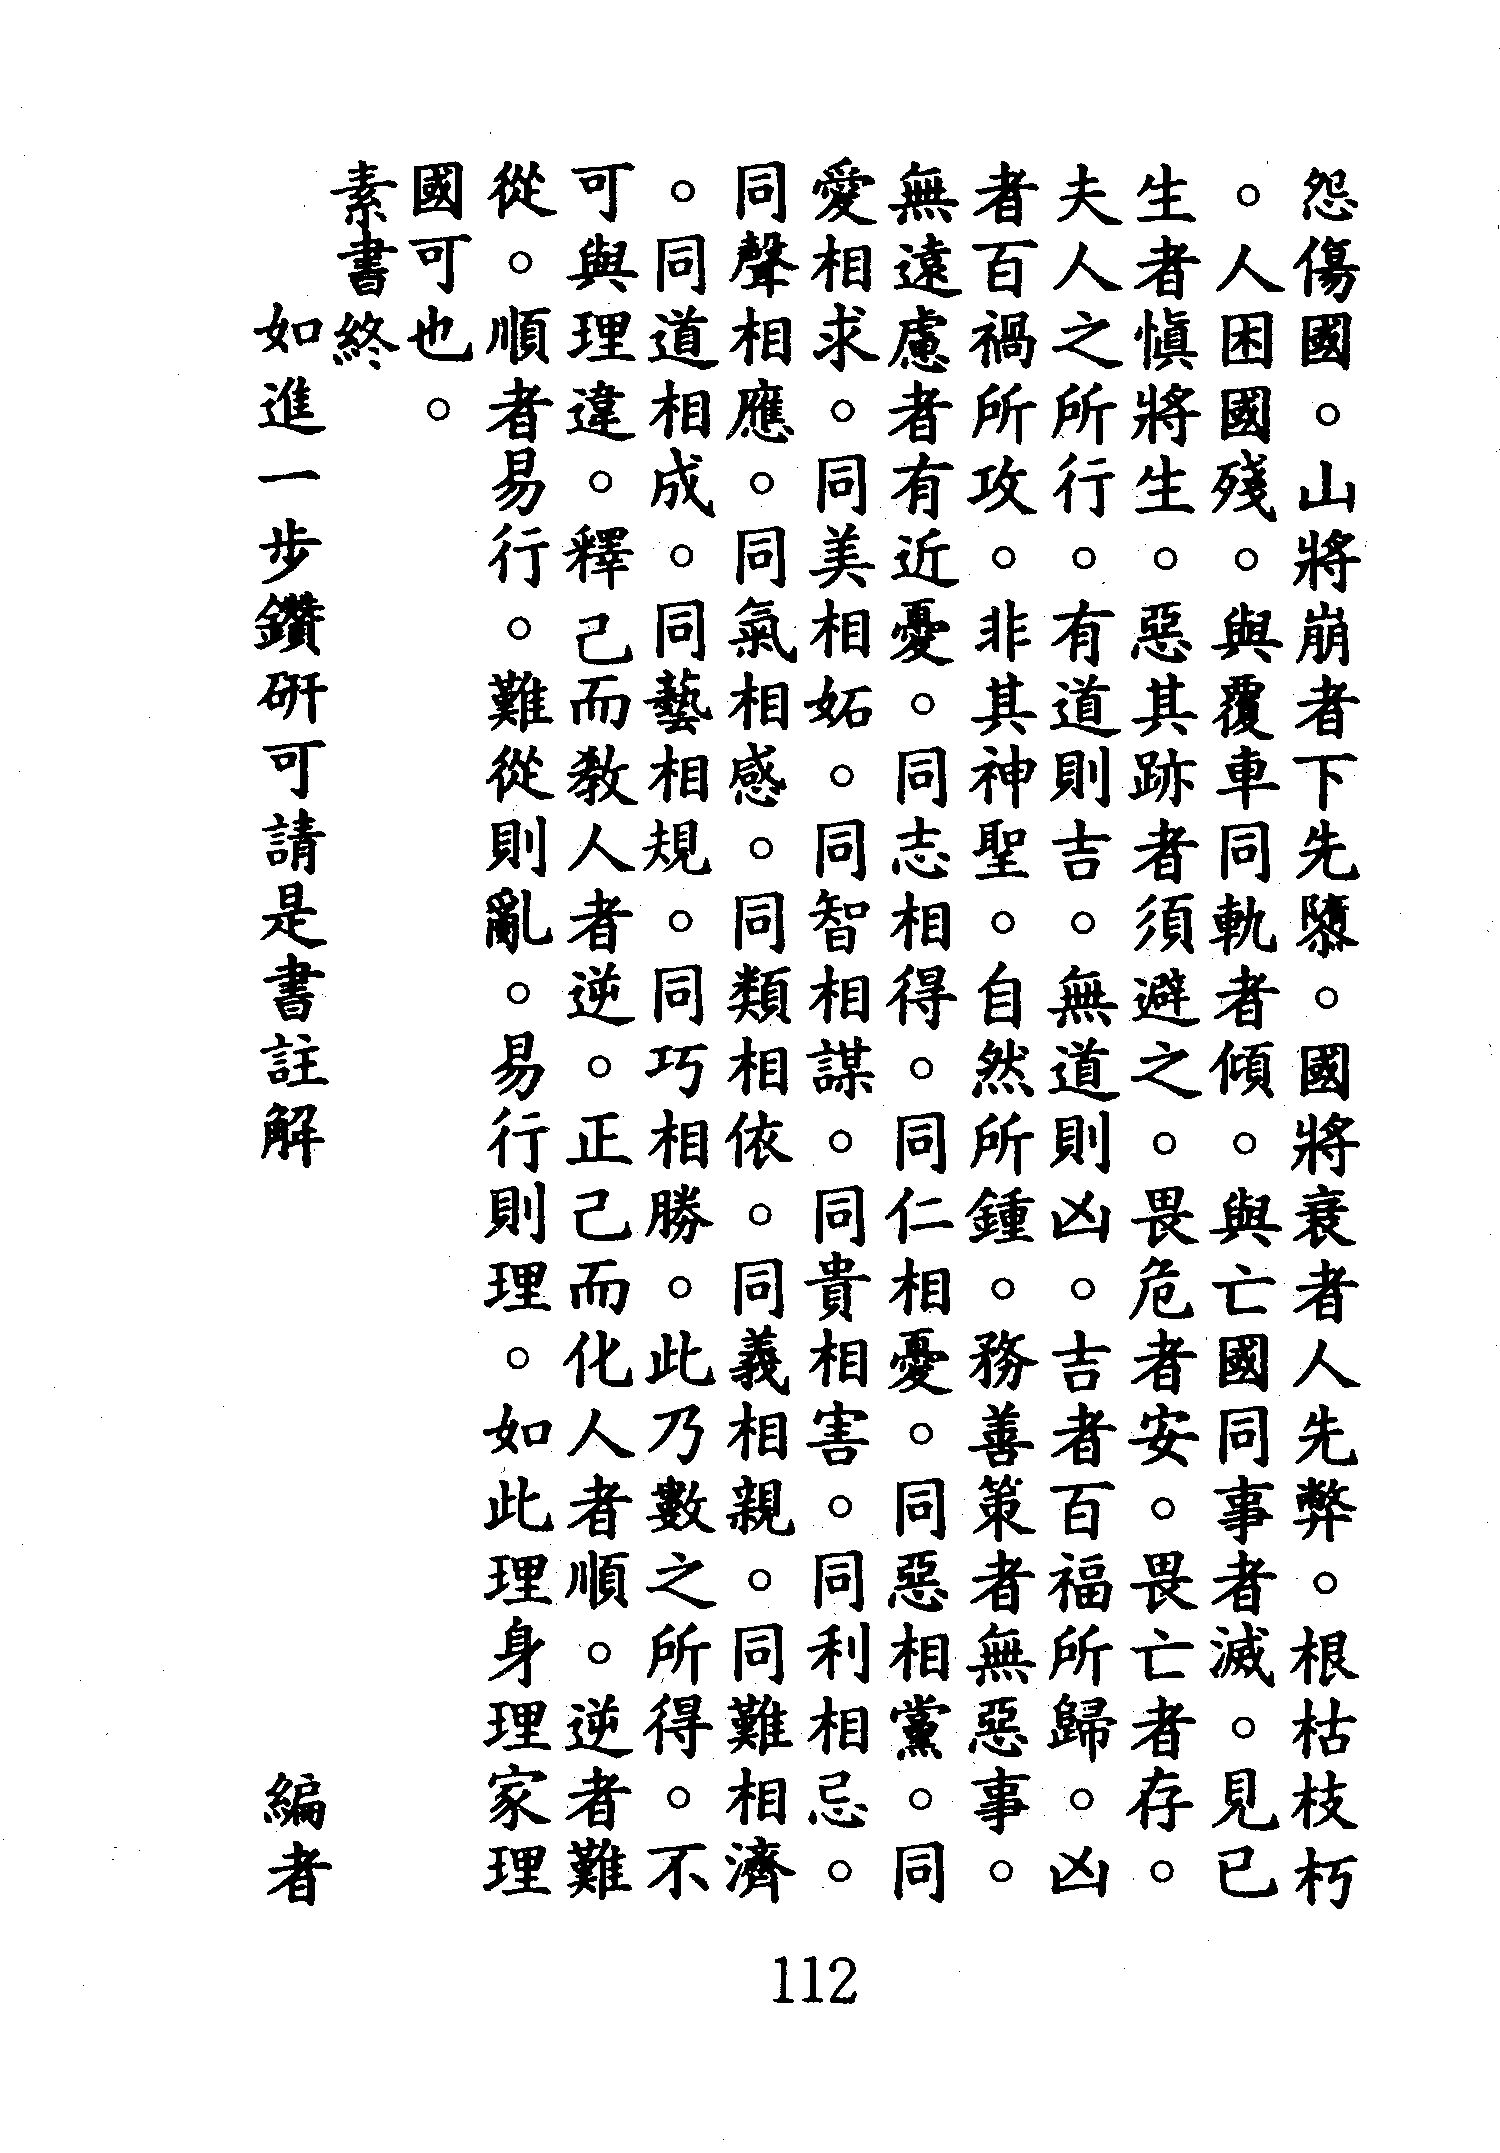 怨傷國。山將崩者下先隳。國將衰者人先弊。根枯枝朽
。人困國殘。與覆車同軌者傾。與亡國同事者滅。見已
生者慎將生。惡其跡者須避之。畏危者安。畏亡者存。
夫人之所行。有道則吉。無道則凶。吉者百福所歸。凶
者百禍所攻。非其神聖。自然所鍾。務善策者無惡事。
無遠慮者有近憂。同志相得。同仁相憂。同惡相黨。同
愛相求。同美相妬。同智相謀。同貴相害。同利相忌。
同聲相應。同氣相感。同類相依。同義相親。同難相濟
。同道相成。同藝相規。同巧相勝。此乃數之所得。不
可與理違。釋己而教人者逆。正己而化人者順。逆者難
從。順者易行。難從則亂。易行則理。如此理身理家理
國可也。
素書終
如進一步鑽研可請是書註解 編者
112